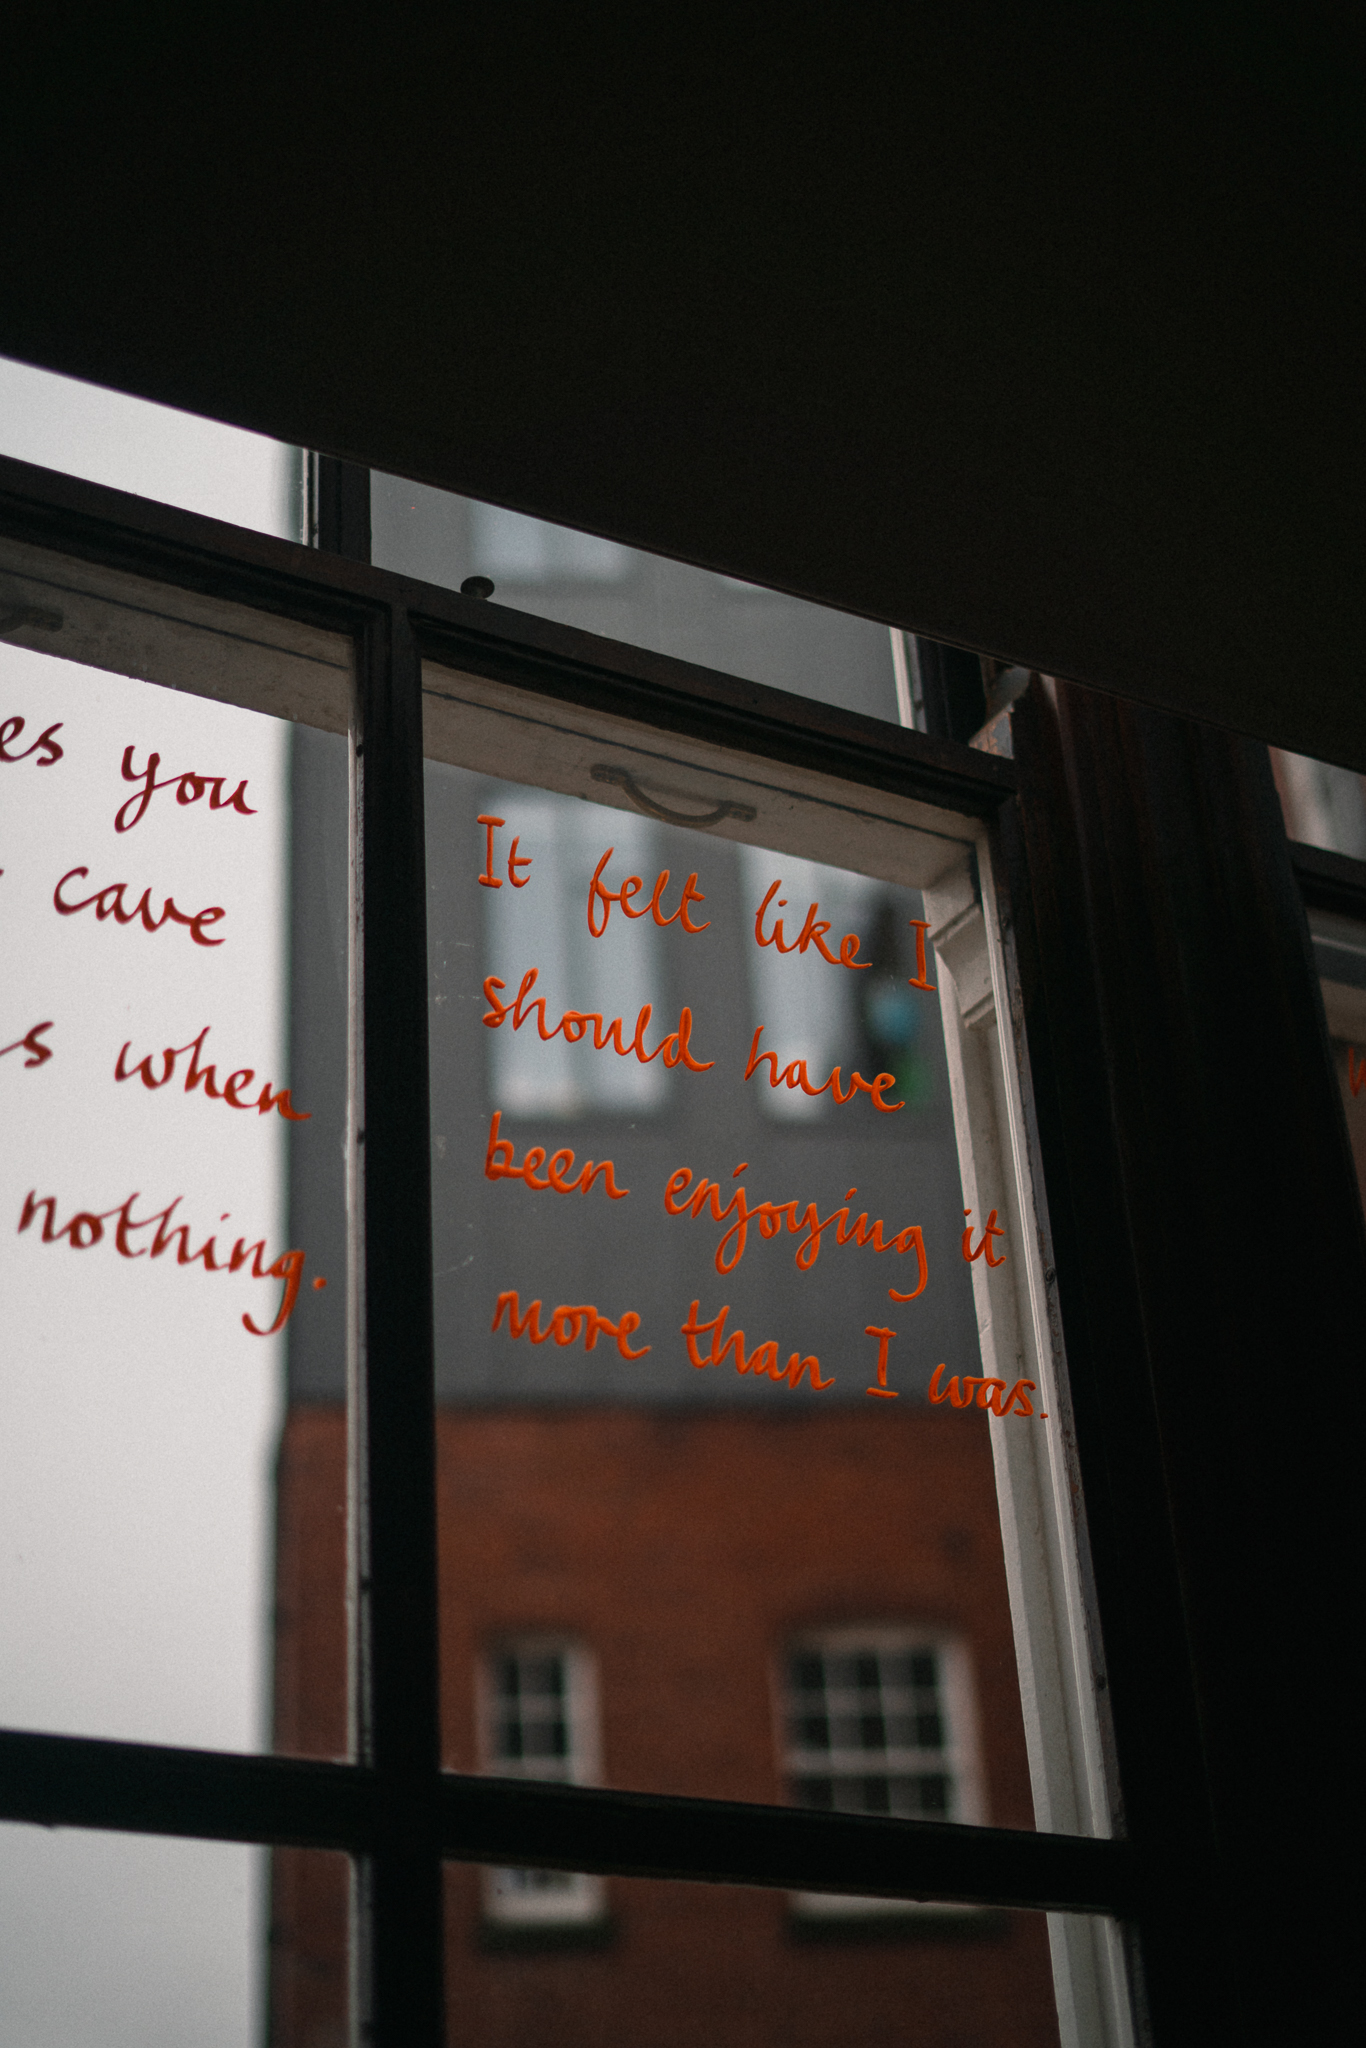 you
cave
when
nothing.
It felt like I
should have
been enjoying it
more than I was.